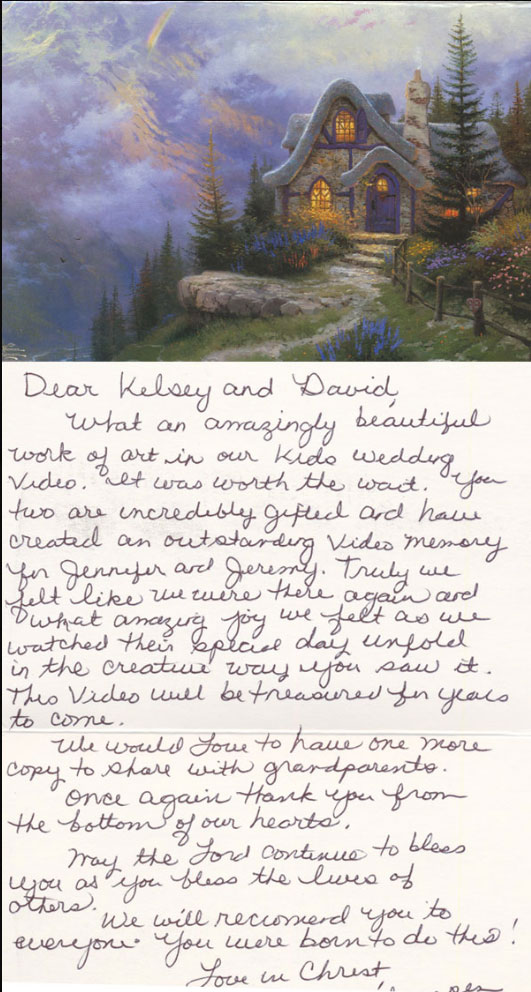 Dear Kelsey and David,
What an amazingly beautiful
work of art in our Kids wedding
Video. It was worth the wait. You
two are incredibly gifted and have
created an outstanding Video memory
for Jennifer and Jeremy. Truly we
felt like we were there again and
what amazing joy we felt as we
watched their special day unfold
in the creative way you saw it.
This Video will be treasured for years
to come.
We would love to have one more
copy to share with grandparents.
Once again thank you from
the bottom of our hearts.
May the Lord continue to bless
you as you bless the lives of
others.
We will recciomend you to
everyone. You were born to do this!
Love in Christ,